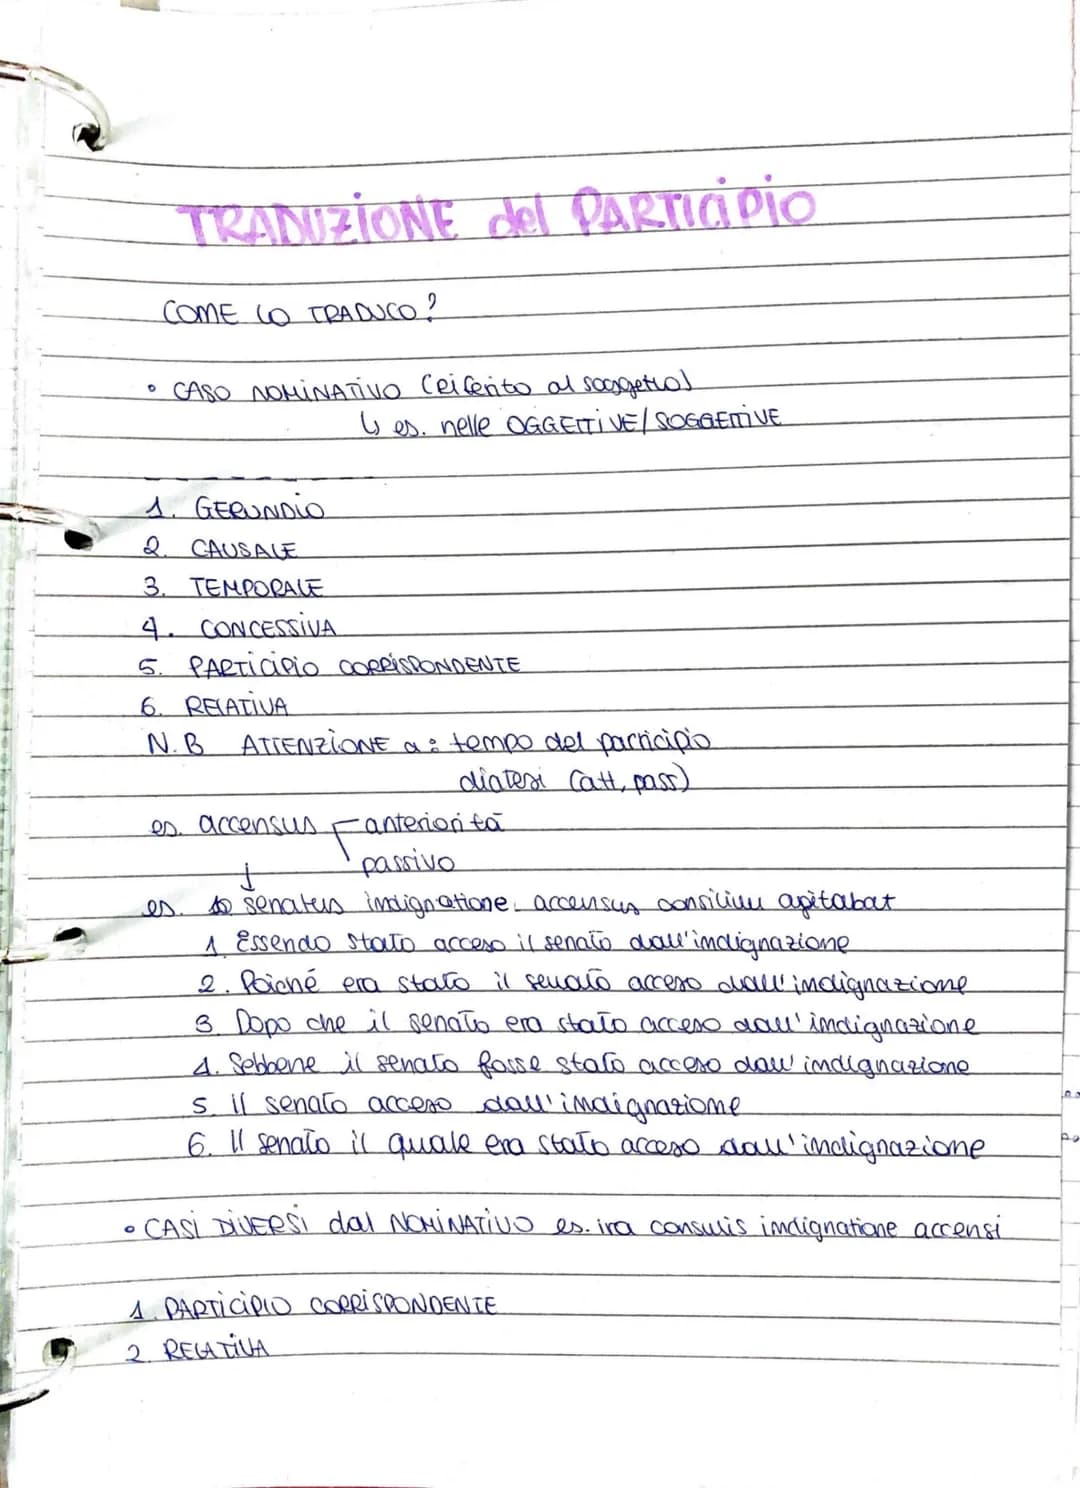 TRADUZIONE del PARTICIPIO
COME LO TRADUCO?
• CASO NOMINATIVO (riferito al soggetto)
↳ es. nelle OGGETTIVE/SOGGETTIVE
1. GERUNDIO
2. CAUSALE
3. TEMPORALE
4. CONCESSIVA
5. PARTICIPIO CORRISPONDENTE
6. RELATIVA
N.B ATTENZIONE a: tempo del participio
diatesi (att, pass)
es. accensus anteriorità
passivo
es. senatus indignatione accensus consilium agitabat
1. Essendo stato acceso il senato dall'indignazione
2. Poiché era stato il senato acceso dall'indignazione
3. Dopo che il senato era stato acceso dall'indignazione
4. Sebbene il senato fosse stato acceso dall'indignazione
5. il senato acceso dall'indignazione
6. Il senato il quale era stato acceso dall'indignazione
• CASI DIVERSI dal NOMINATIVO es. ira consulis indignatione accensi
1. PARTICIPIO CORRISPONDENTE
2. RELATIVA